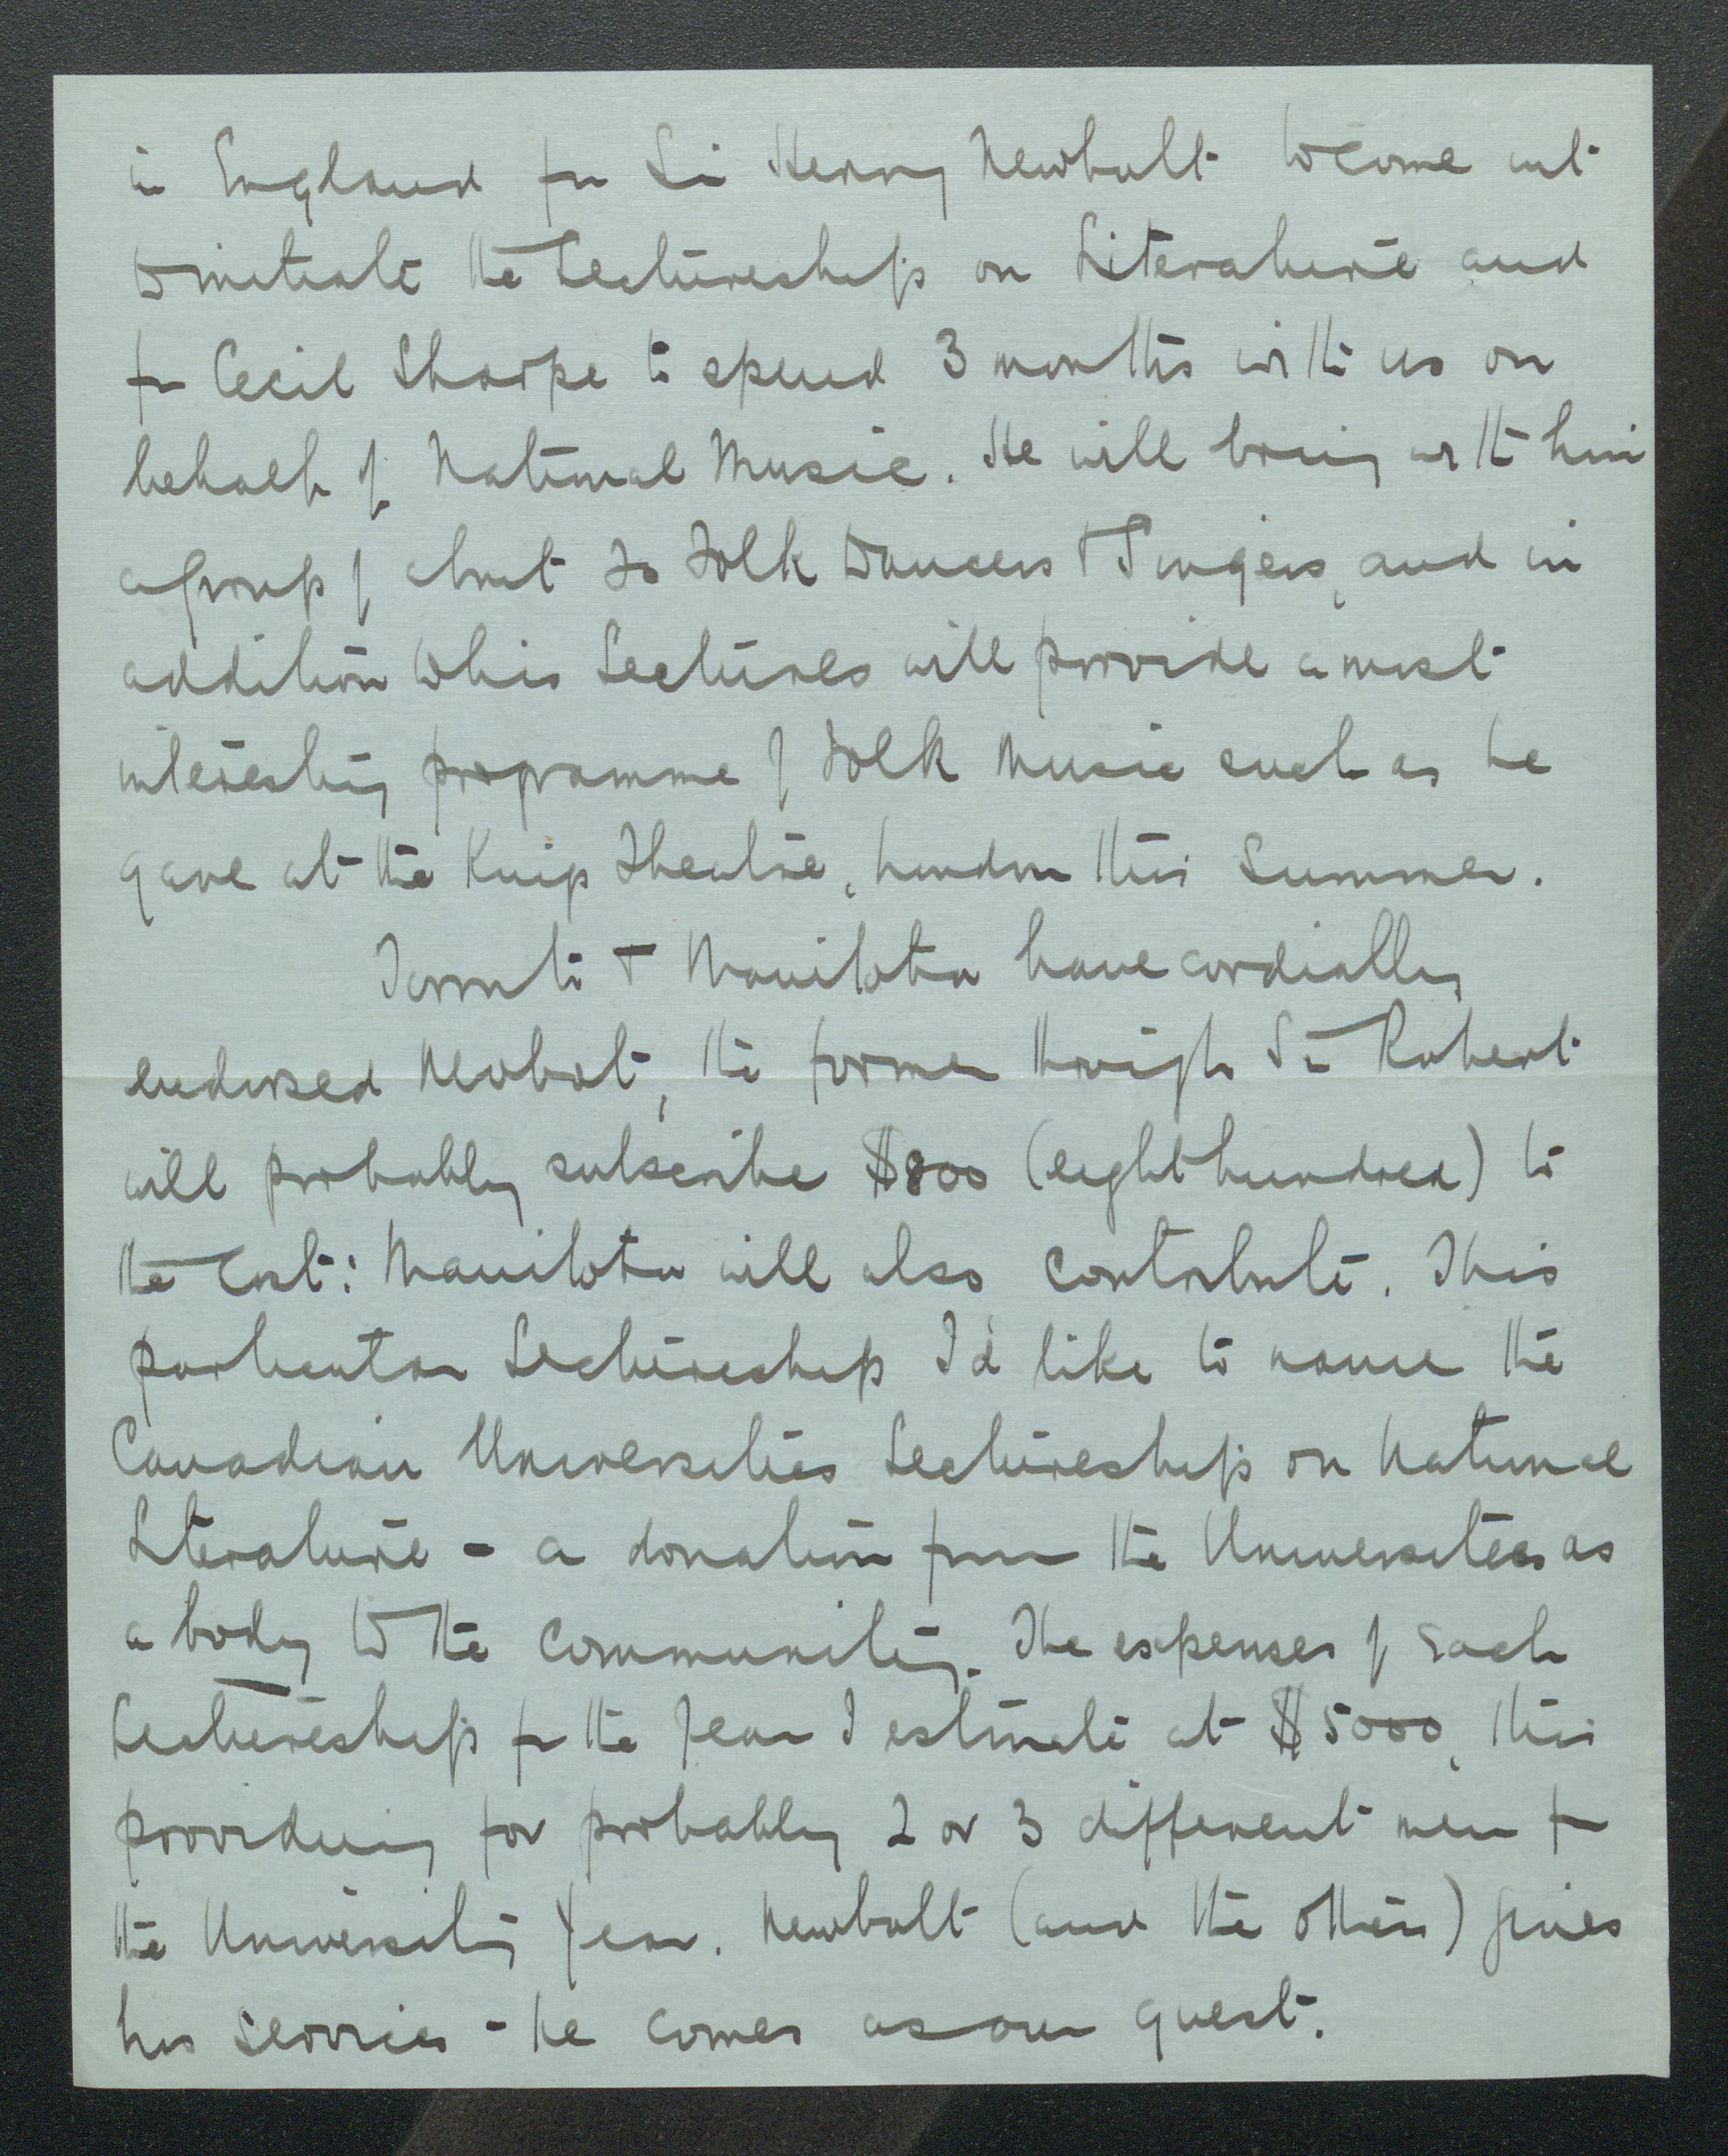 in England for Sir Henry Newbolt to come out
to initiate the Lectureship on Literature and
for Cecil Sharpe to spend 3 months with us on
behalf of National Music. He will bring with him
a group of about Folk Dancers & Singers, and in
addition to his Lectures will provide a most
interesting programme of Folk Music such as he
gave at the King's Theatre, London this Summer.
Toronto & Manitoba have cordially
endorsed Newbolt, the former through Sir Robert
will probably subscribe $800 (eight hundred) to
the cost: Manitoba will also contribute. This
particular Lectureship I'd like to name the
Canadian Universities Lectureship on National
Literature - a donation from the Universities as
a body to the Community. The expenses of each
Lectureship for the year I estimate at $5000, this
providing for probably 2 or 3 different men for
the University Year. Newbolt (and the others) gives
his services - he comes as our guest.